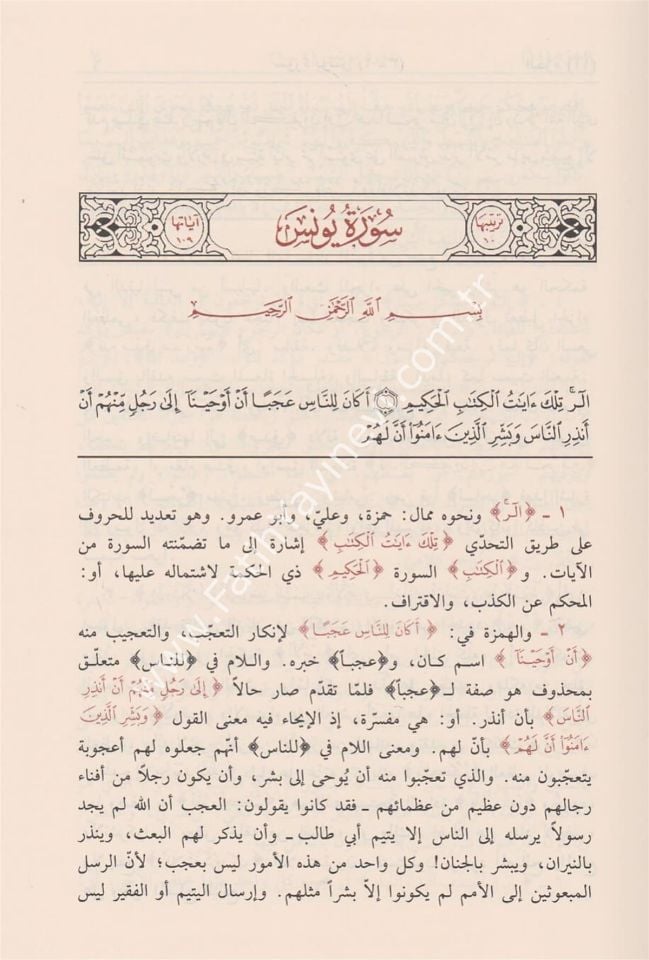 ترتيبها ١٠
سُورَةُ يُونُسَ
آياتها ١٠٩
بِسْمِ اللَّهِ الرَّحْمَٰنِ الرَّحِيمِ
الٓرۚ تِلْكَ ءَايَٰتُ الْكِتَٰبِ الْحَكِيمِ ۝١ أَكَانَ لِلنَّاسِ عَجَبًا أَنْ أَوْحَيْنَآ إِلَىٰ رَجُلٍ مِّنْهُمْ أَنْ
أَنذِرِ النَّاسَ وَبَشِّرِ الَّذِينَ ءَامَنُوٓا۟ أَنَّ لَهُمْ
١ ـ ﴿الٓرۚ﴾ ونحوه ممال: حمزة، وعليّ، وأبو عمرو. وهو تعديد للحروف
على طريق التحدّي ﴿تِلْكَ ءَايَٰتُ الْكِتَٰبِ﴾ إشارة إلى ما تضمّنته السورة من
الآيات. و﴿الْكِتَٰبِ﴾ السورة ﴿الْحَكِيمِ﴾ ذي الحكمة لاشتماله عليها، أو:
المحكم عن الكذب، والافتراف.
٢ ـ والهمزة في: ﴿أَكَانَ لِلنَّاسِ عَجَبًا﴾ لإنكار التعجّب، والتعجيب منه
﴿أَنْ أَوْحَيْنَآ﴾ اسم كان، و﴿عجباً﴾ خبره. واللام في ﴿للناس﴾ متعلّق
بمحذوف هو صفة لـ﴿عجباً﴾ فلمّا تقدّم صار حالاً ﴿إِلَىٰ رَجُلٍ مِّنْهُمْ أَنْ أَنذِرِ
النَّاسَ﴾ بأن أنذر. أو: هي مفسّرة، إذ الإيحاء فيه معنى القول ﴿وَبَشِّرِ الَّذِينَ
ءَامَنُوٓا۟ أَنَّ لَهُمْ﴾ بأنّ لهم. ومعنى اللام في ﴿للناس﴾ أنهم جعلوه لهم أعجوبة
يتعجّبون منه. والذي تعجّبوا منه أن يُوحى إلى بشر، وأن يكون رجلاً من أفناء
رجالهم دون عظيم من عظمائهم ـ فقد كانوا يقولون: العجب أن الله لم يجد
رسولاً يرسله إلى الناس إلا يتيم أبي طالب ـ وأن يذكر لهم البعث، وينذر
بالنيران، ويبشر بالجنان! وكل واحد من هذه الأمور ليس بعجب؛ لأنّ الرسل
المبعوثين إلى الأمم لم يكونوا إلاّ بشراً مثلهم. وإرسال اليتيم أو الفقير ليس